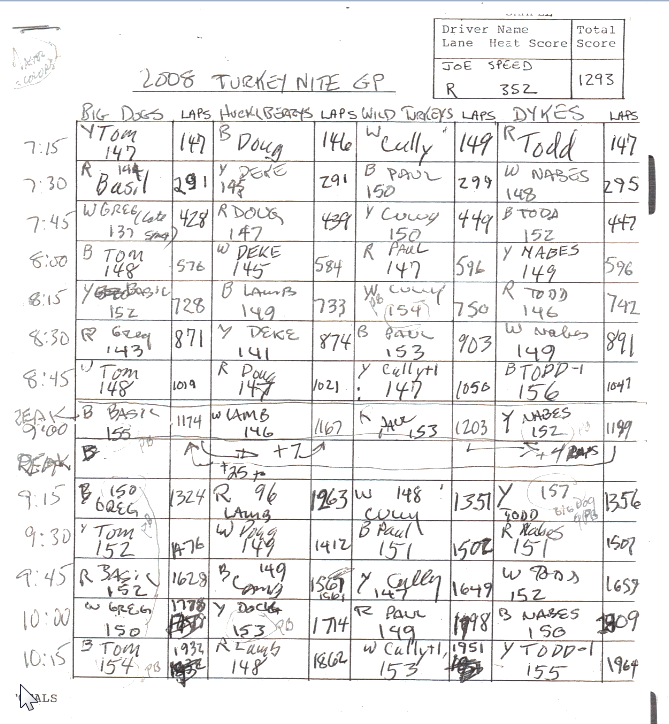 Driver Name Total
Lane Heat Score Score
JOE SPEED
R 352 1293
2008 TURKEY NITE GP
BIG DOGS LAPS HUCKLEBERRYS LAPS WILD TURKEYS LAPS DYKES LAPS
7:15 Y Tom 147 147 B Doug 146 W Cully 149 R Todd 147
7:30 R Basil 144 291 Y DEKE 145 291 B PAUL 150 299 W NABES 148 295
7:45 W GREG (late 137 428 R DOUG 147 439 Y CULLY 150 449 B TODD 152 447
8:00 B TOM 148 576 W DEKE 145 584 R PAUL 147 596 Y NABES 149 596
8:15 Y BASIC 152 728 B LAMB 149 733 W CULLY PB 154 750 R TODD 146 742
8:30 R Greg 143 871 Y DEKE 141 874 B PAUL 153 903 W Nabes 149 891
8:45 W Tom 148 1019 R Doug 147 1021 Y Cully+1 147 1050 B TODD-1 156 1047
9:00 B BASIC 155 PB 1174 W LAMB 146 1167 PAUL 153 1203 Y NABES 152 1199
B +7 +4 LAPS
+25
9:15 B 150 GREG 1324 R 96 LAMB 1263 W 148 CULLY 1351 Y 157 TODD BIG DOG PB 1356
9:30 Y Tom 152 1476 W Doug 149 1412 B Paul 151 1502 R Nabes 151 1507
9:45 R BASIC 152 1628 B 149 Lamb 1561 1561 Y Cully 147 1649 W TODD 152 1659
10:00 W GREG 150 1778 Y DOUG 153 PB 1714 R PAUL 149 1798 B NABES 150 1809
10:15 B Tom 154 PB 1932 R Lamb 148 1862 W Cully+1 153 1951 Y TODD-1 155 1964
ALS